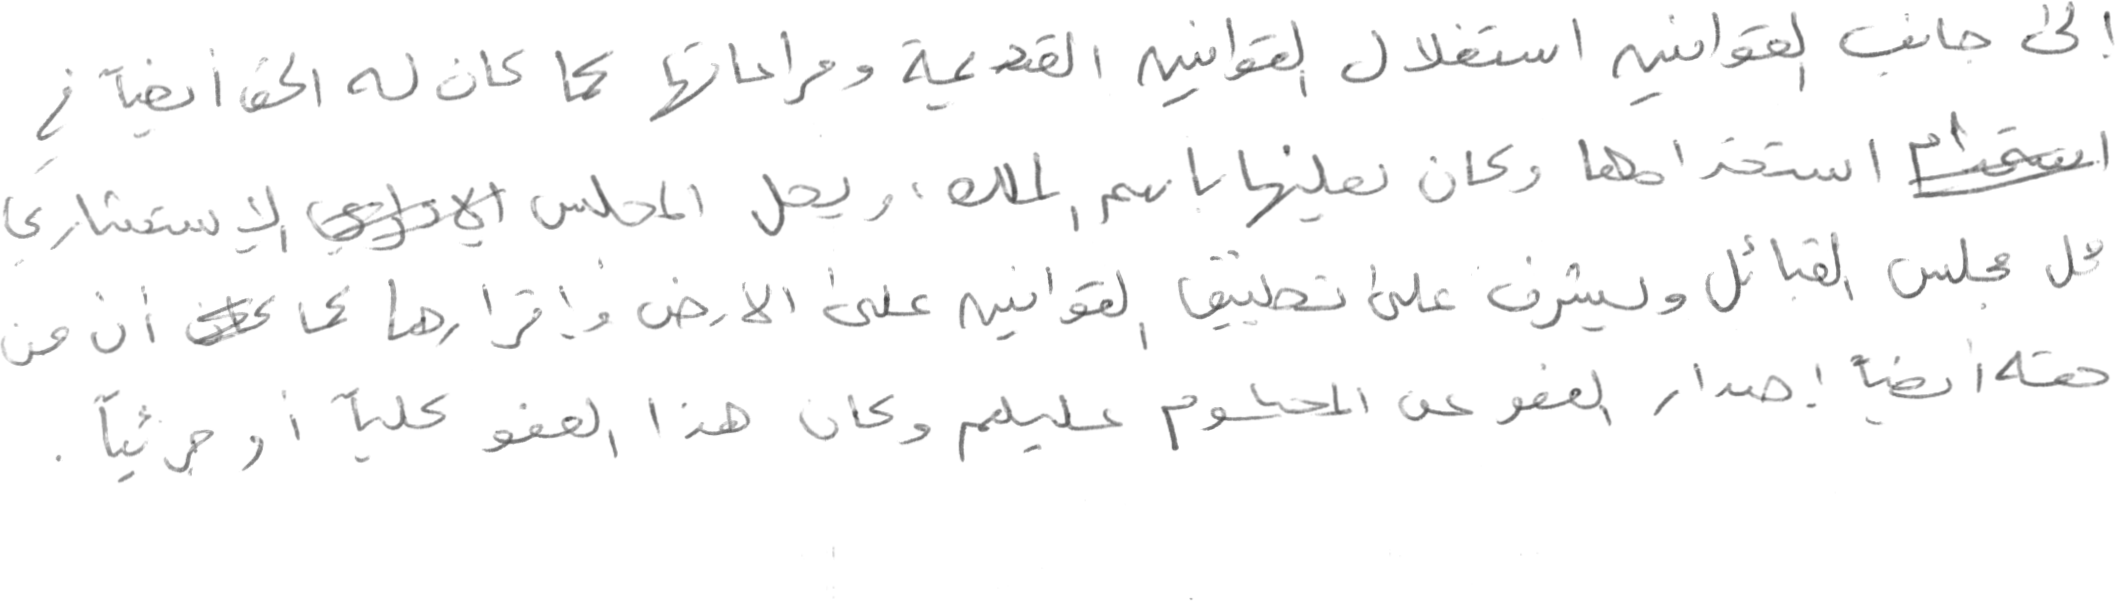 إلى جانب القوانين استغلال القوانين القديمة ومراعاتها كما كان له الحق أيضاً في
استخدامها وكان يعلنها باسم الملك، ويحل المجلس الإستشاري
محل مجلس القبائل ويشرف على تطبيق القوانين على الأرض وإقرارها كما أن من
حقه أيضاً إصدار العفو عن المحكوم عليهم وكان هذا العفو كلياً أو جزئياً.